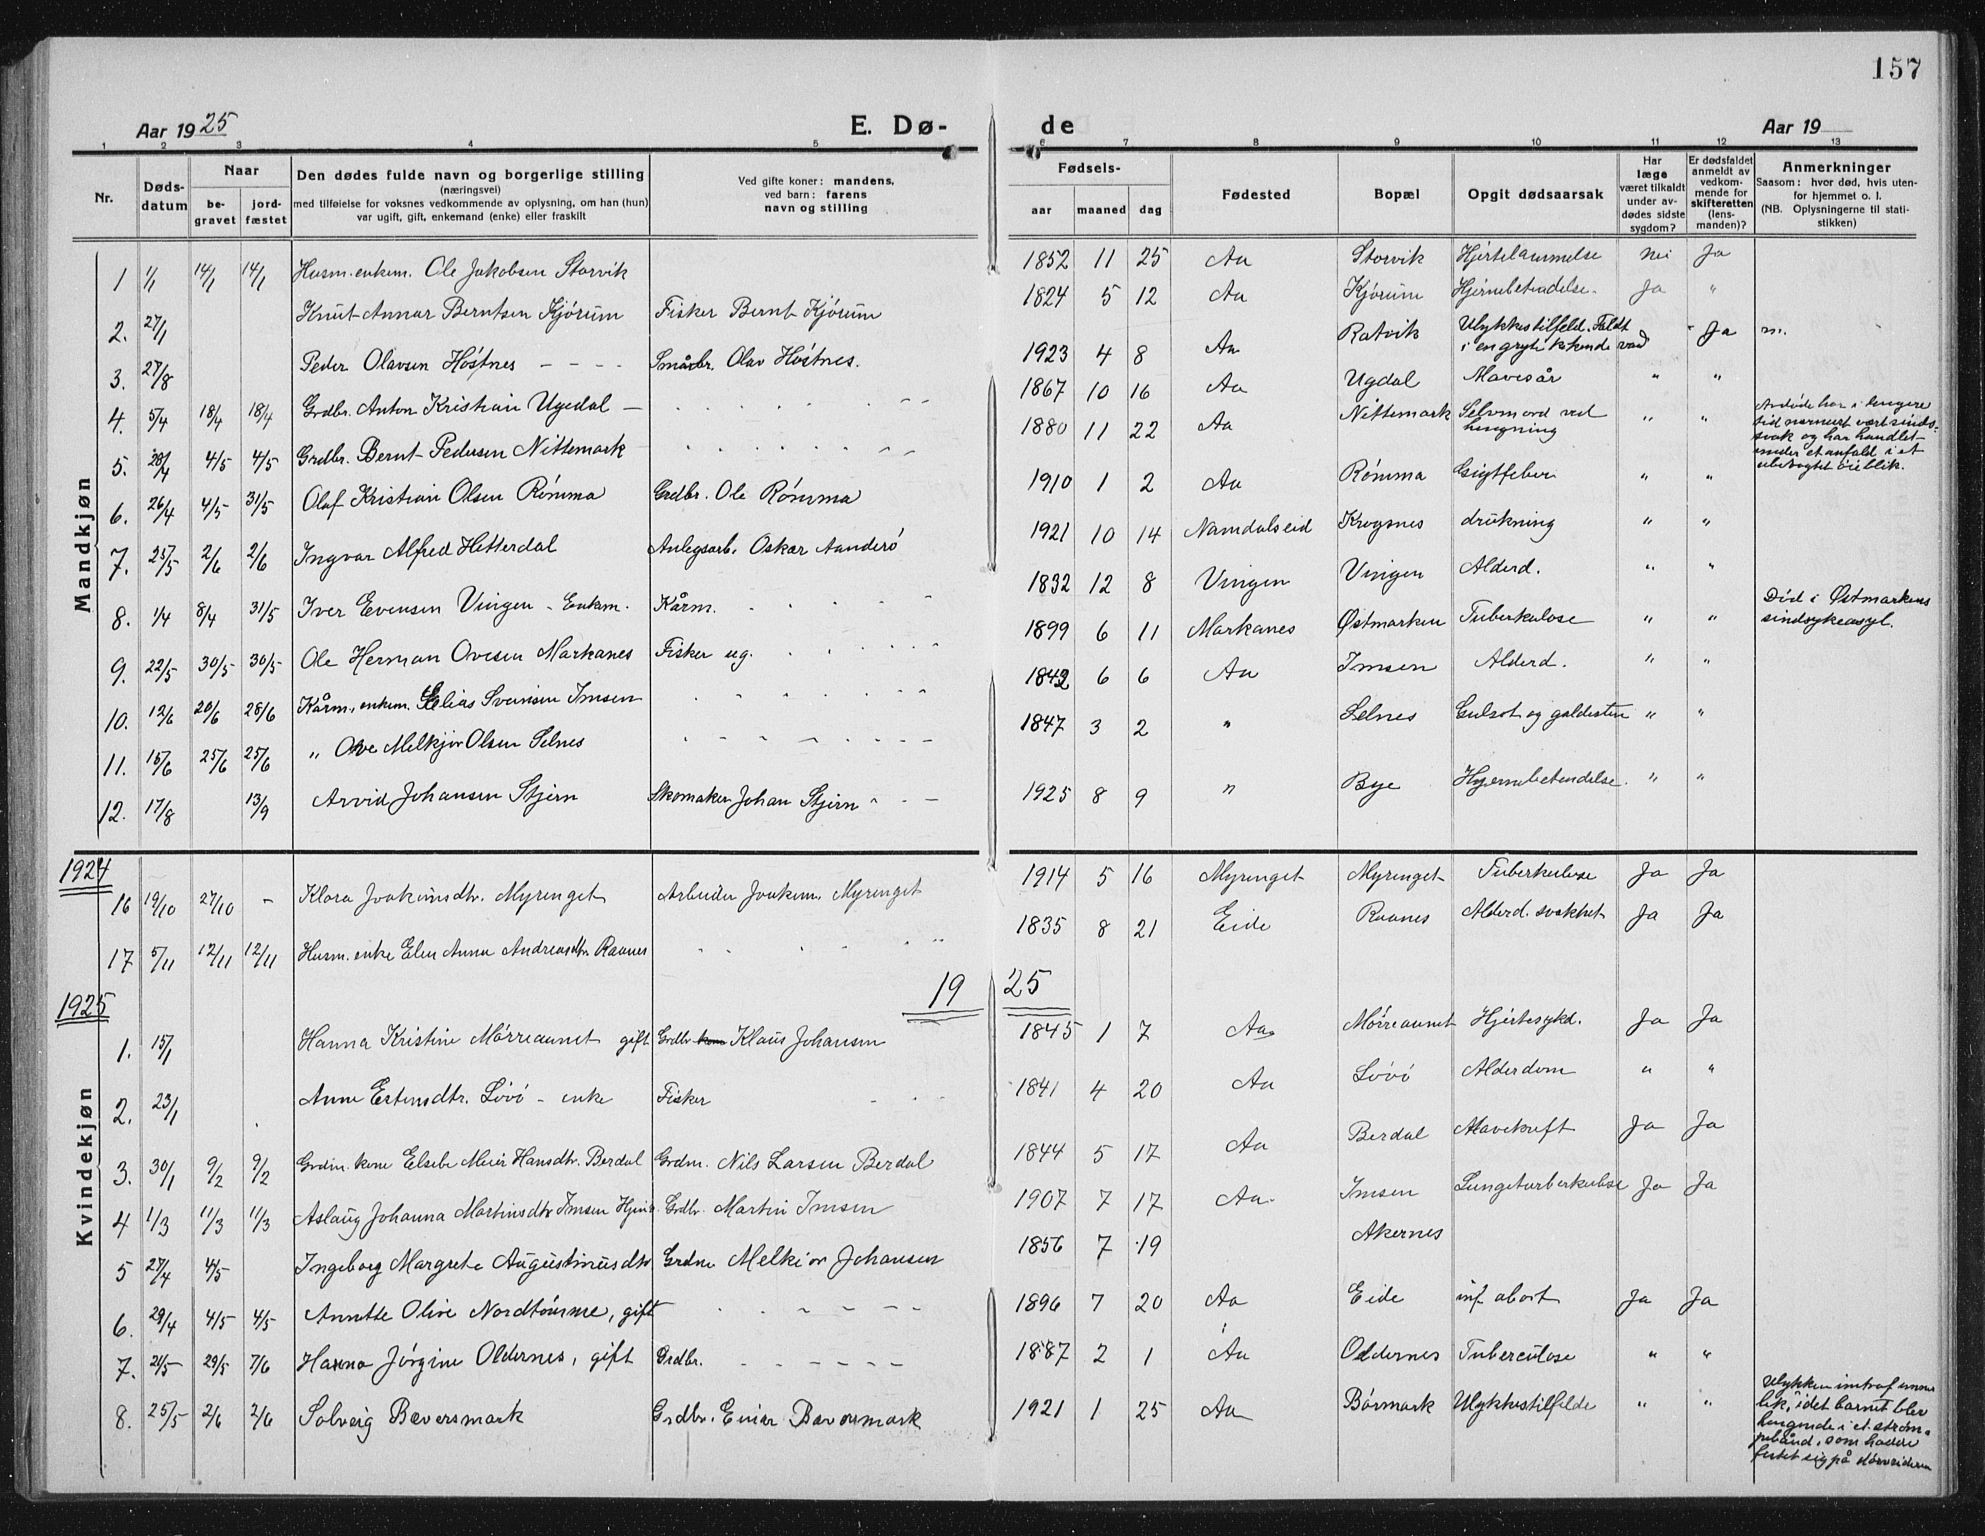 157
Aar 1925 E. Dø- de Aar 19
1 2 3 4 5 6 7 8 9 10 11 12 13
Nr. Døds-datum Naar be-gravet jord-fæstet
Den dødes fulde navn og borgerlige stilling
(næringsvei)
med tilføielse for voksnes vedkommende av oplysning, om han (hun)
var ugift, gift, enkemand (enke) eller fraskilt
Ved gifte koner: mandens,
ved barn: farens
navn og stilling
Fødsels- aar maaned dag
Fødested
Bopæl
Opgit dødsaarsak
Har læge været tilkaldt under av-dødes sidste sygdom?
Er dødsfaldet anmeldt av vedkom-mende for skifteretten (lens-manden)?
Anmerkninger
Saasom: hvor død, hvis uten-
for hjemmet o. l.
(NB. Oplysningerne til stati-
stikken)
Mandkjøn
1 1/1 14/1 14/1 Husm. enkem. Ole Jakobsen Storvik 1852 11 25 Aa Storvik Hjertelammelse nei Ja
2. 27/1 Knut Annar Berntsen Kjørum Fisker Bernt Kjørum 1824 5 12 Aa Kjørum Hjernebetændelse. Ja "
3. 27/8 Peder Olavsen Høstnes - - - - Småbr. Olav Høstnes. 1923 4 8 Aa Ratvik Ulykkestilfeld. Faldt i en gryte kokende vand " Ja
4. 5/4 18/4 18/4 Grdbr. Anton Kristian Ugedal - 1867 10 16 Aa Ugdal Mavesår " "
5. 28/4 4/5 4/5 Grdbr. Bernt Pedersen Nittemark 1880 11 22 Aa Nittemark Selvmord ved hengning " " Avdøde har i lengere tid nærmest vært sinds-svak og har handlet under et anfald i et ubevogtet øieblik.
6. 26/4 4/5 31/5 Olaf Kristian Olsen Rømma Grdbr. Ole Rømma 1910 1 2 Aa Rømma Gigtfeber " "
7. 25/5 2/6 2/6 Ingvar Alfred Hetterdal Anlegsarb. Oskar Aanderø 1921 10 14 Namdalseid Krogsnes drukning " "
8. 1/4 8/4 31/5 Iver Evensen Vingen - Enkm. Kårm. 1832 12 8 Vingen Vingen Alderd. " "
9. 22/5 30/5 30/5 Ole Herman Ovesen Markanes Fisker ug. 1899 6 11 Markanes Østmarken Tuberkulose " " Død i Østmarkens sindsykeasyl.
10. 12/6 20/6 28/6 Kårm. enkem. Elias Svensen Imsen 1842 6 6 Aa Imsen Alderd. " "
11. 15/6 25/6 25/6 " Ove Melkjor Olsen Selnes 1847 3 2 " Selnes Gulsot og galdesten " "
12. 17/8 13/9 Arvid Johansen Stjern Skomaker Johan Stjern 1925 8 9 " Bye Hjernebetendelse. " "
Kvindekjøn
1924
16 19/10 27/10 - Klara Joakimsdtr. Myrenget Arbeider Joakim. Myrenget 1914 5 16 Myrenget Myrenget Tuberkulose Ja Ja
17 5/11 12/11 12/11 Husm. enke Elen Anna Andreasdtr. Raanes 1835 8 21 Eide Raanes Alderd. svakhet Ja Ja
1925 19 25
1. 15/1 Hanna Kristine Mørreaunet gift Grdbr. kone Klaus Johansen 1845 1 7 Aa Mørreaunet Hjertesykd. Ja Ja
2. 23/1 Anne Estensdtr. Løvø - enke Fisker 1841 4 20 Aa Løvø Alderdom " "
3. 30/1 9/2 9/2 Grdm. kone Elsebe Meier Hansdtr. Berdal Grdm. Nils Larsen Berdal 1844 5 17 Aa Berdal Mavekreft Ja Ja
4 1/3 11/3 11/3 Aslaug Johanna Martinsdtr Imsen Grdbr. Martin Imsen 1907 7 17 Aa. Imsen Lungetuberkulose Ja Ja
5 27/4 4/5 Ingeborg Margrete Augustinusdtr Grdm Melkior Johansen 1856 7 19 Akernes
6. 29/4 4/5 4/5 Annette Olive Nordtømme, gift 1896 7 20 Aa Eide inf. abort Ja Ja
7. 21/5 29/5 7/6 Hanna Jørgine Oldernes, gift Grdbr. 1887 2 1 Aa Oldernes Tuberculose " "
8. 25/5 2/6 2/6 Solveig Bæversmark Grdbr. Einar Bæversmark 1921 1 25 Aa Børmark Ulykkestilfelde " " Ulykken intraf idet barnet blev hengende i et strøm-pebånd, som hadde festet sig på